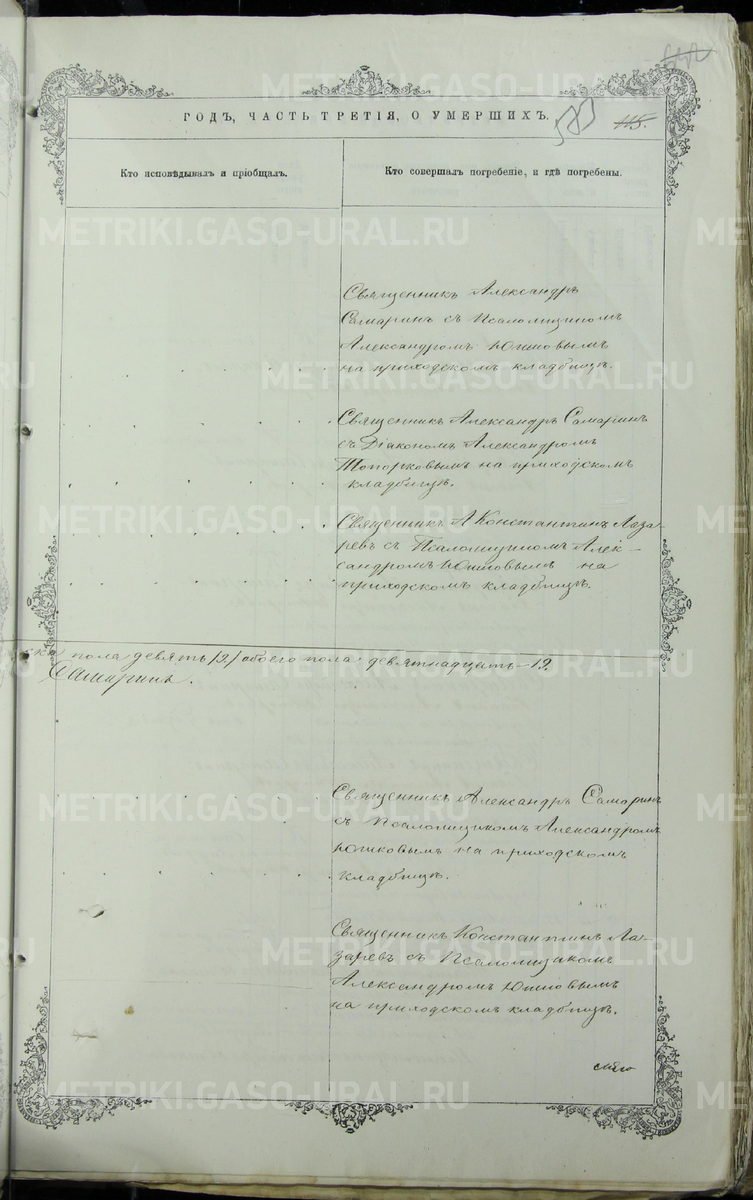 ГОДЪ, ЧАСТЬ ТРЕТІЯ, О УМЕРШИХЪ.
115.
Кто исповѣдывалъ и пріобщалъ.
Кто совершалъ погребеніе, и гдѣ погребены.
Священникъ Александръ
Самаринъ съ Псаломщикомъ
Александромъ Юшковымъ
на приходскомъ кладбищѣ.
Священникъ Александръ Самаринъ
съ Діакономъ Александромъ
Топорковымъ на приходскомъ
кладбищѣ.
Священникъ Константинъ Лаза-
ревъ съ Псаломщикомъ Алек-
сандромъ Юшковымъ на
приходскомъ кладбищѣ.
пола девять /9/ обоего пола девятнадцать 19.
Самаринъ.
Священникъ Александръ Самаринъ
съ Псаломщикомъ Александромъ
Юшковымъ на приходскомъ
кладбищѣ.
Священникъ Константинъ Ла-
заревъ съ Псаломщикомъ
Александромъ Юшковымъ
на приходскомъ кладбищѣ.
METRIKI.GASO-URAL.RU